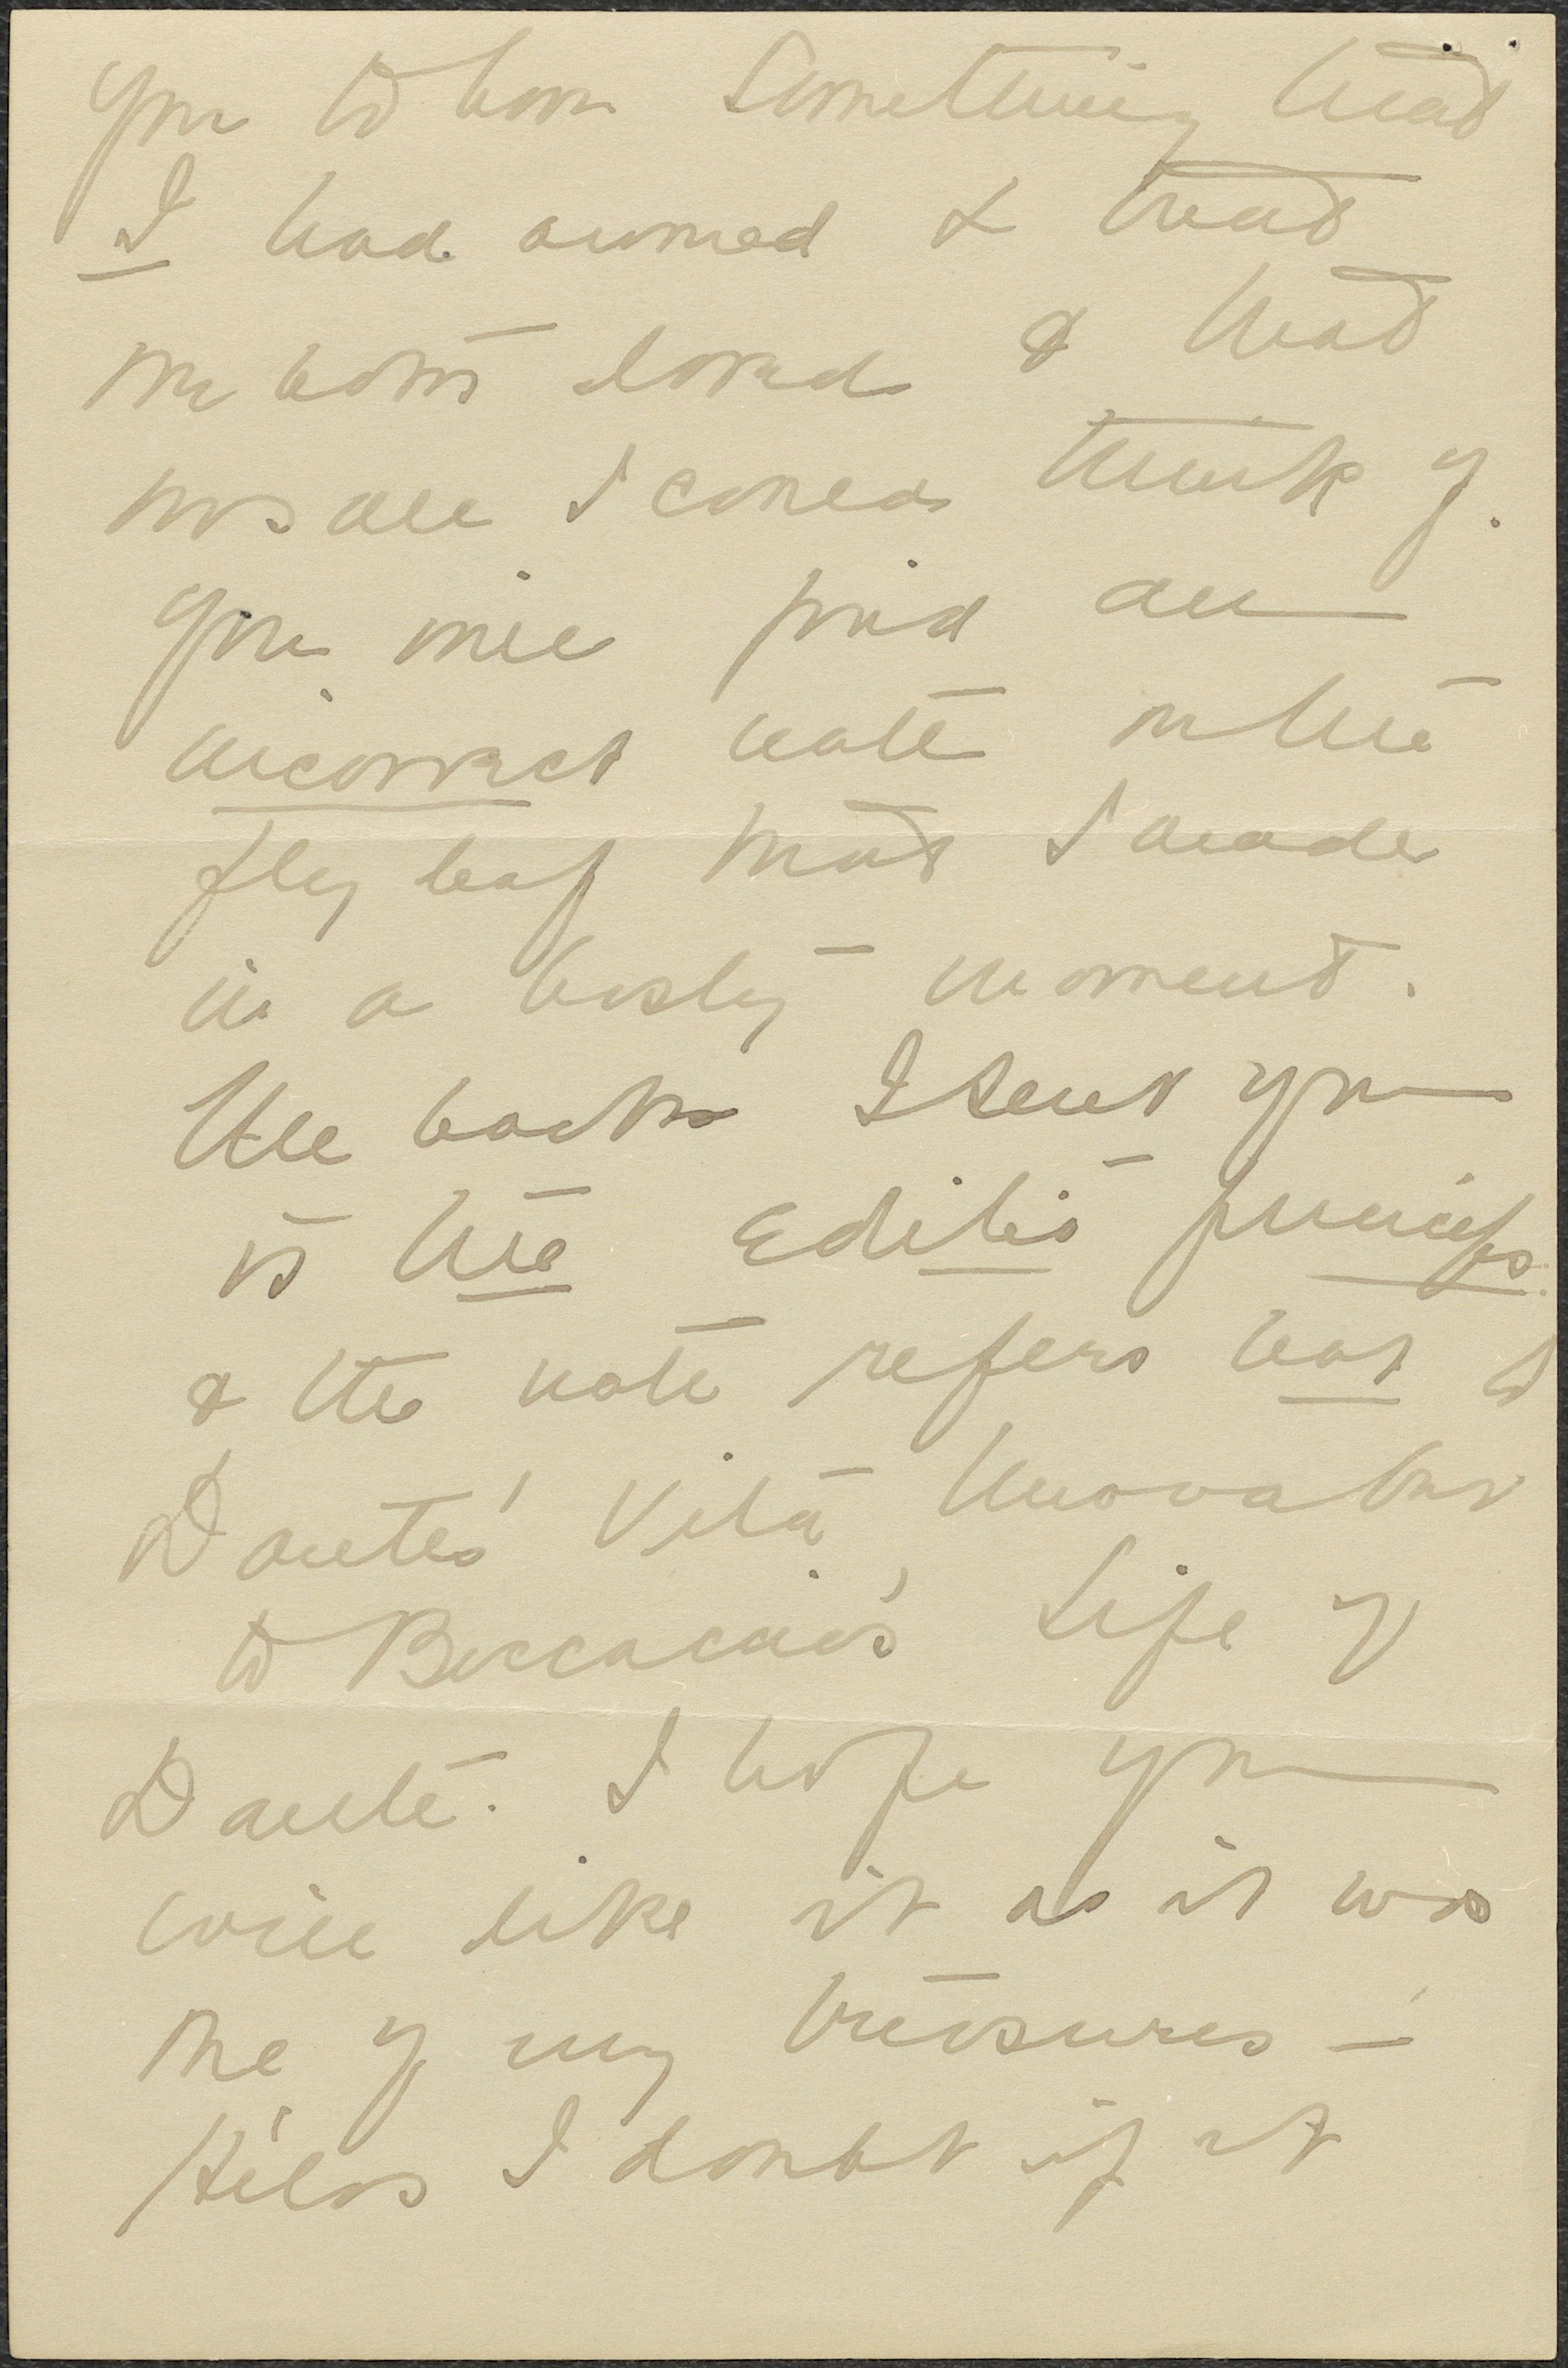 you to have something that
I had owned & that
we both loved & that
was all I could think of.
You will find an
incorrect note on the
fly leaf that I made
in a hasty moment.
The book I sent you
is the Editio princeps
& the note refers not to
Dante's Vita Nuova but
to Boccaccio's Life of
Dante. I hope you
will like it as it was
one of my treasures –
I doubt if it